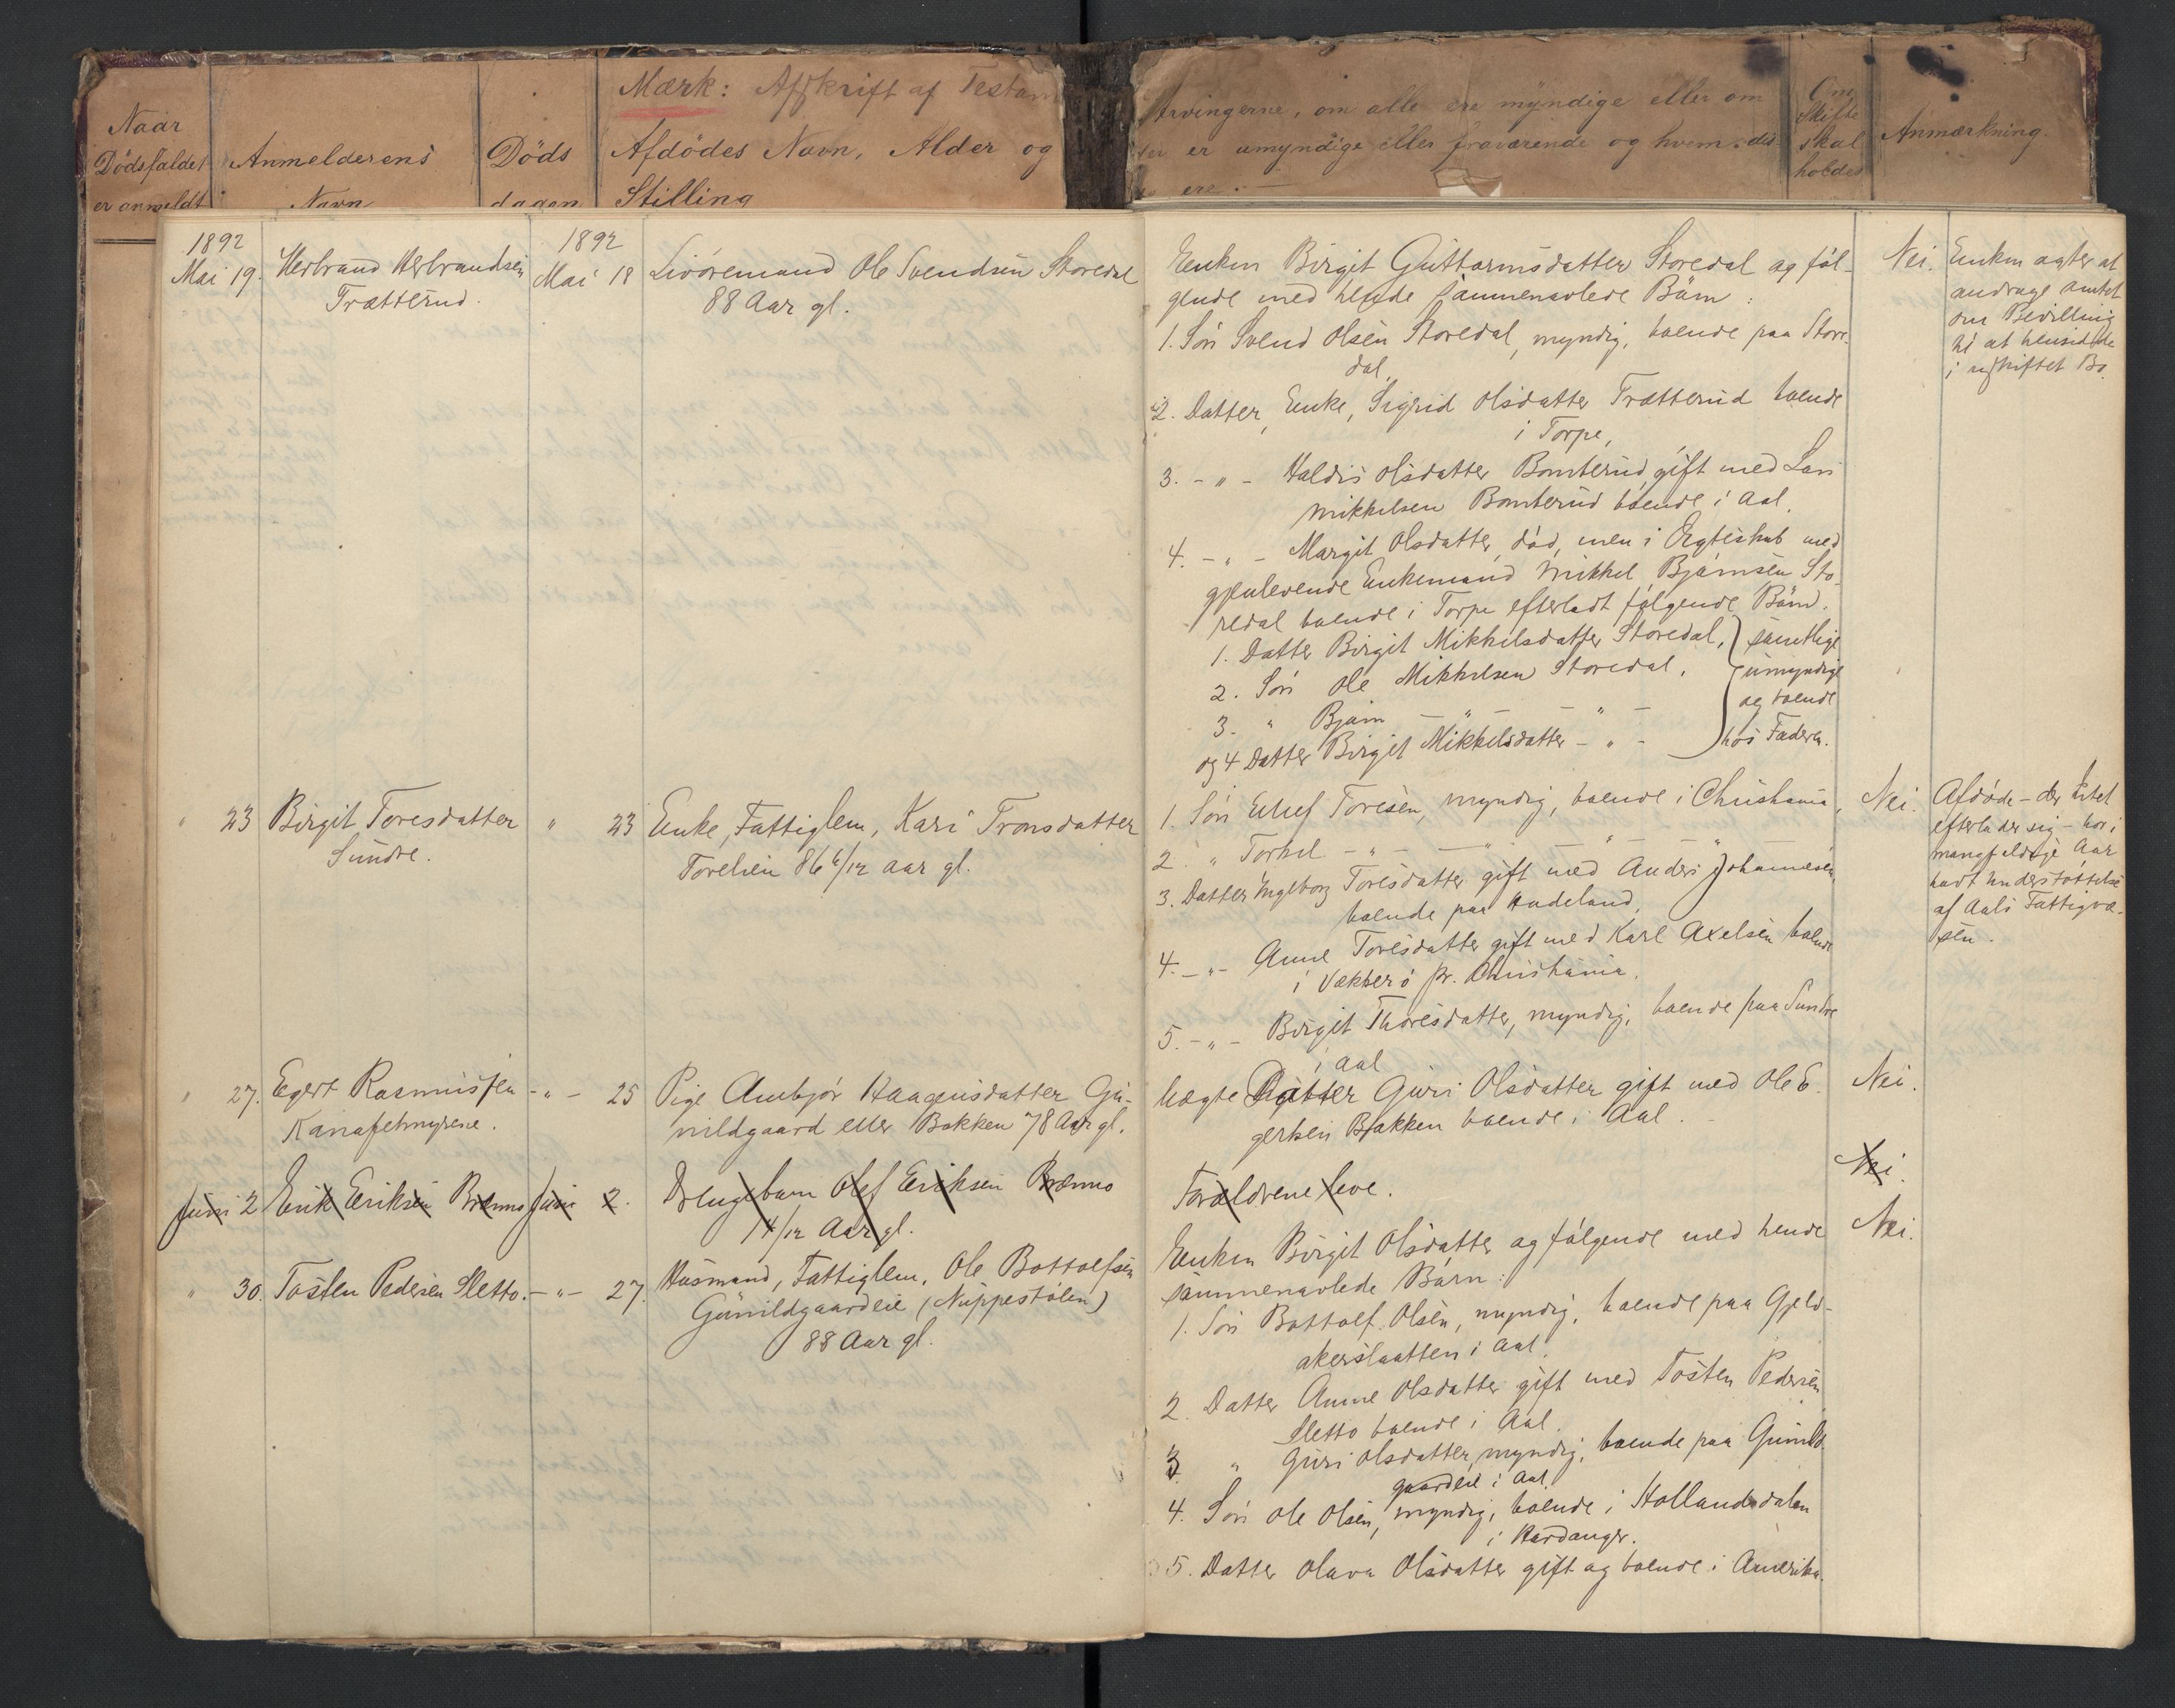 Mærk: Afskrift af Testam
Naar
Dödsfaldet
er anmeldt
Anmelderens
Navn
Döds
dagen
Afdödes Navn, Alder og
Stilling
Arvingerne, om alle ere myndige eller om
er umyndige eller fraværende og hvem dis-
ere. —
Om
Skifte
skal
holdes
Anmærkning.
1892
Mai 19.
Herbrand Herbrandsen
Trætterud.
1892
Mai 18
Livöremand Ole Svendsen Storedal
88 Aar gl.
Enken Birgit Guttormsdatter Storedal og föl-
gende med hende sammenavlede Börn:
1. Sön Svend Olsen Storedal, myndig, boende paa Store-
dal.
2. Datter, Enke, Sigrid Olsdatter Trætterud boende
i Torpe,
3. - " - Haldis Olsdatter Bomterud, gift med Lars
Mikkelsen Bomterud boende i Aal.
4. - " - Margit Olsdatter, död, men i Ægteskab med
gjenlevende Enkemand Mikkel Björnsen Sto-
redal boende i Torpe efterladt fölgende Börn.
1. Datter Birgit Mikkelsdatter Storedal,
2. Sön Ole Mikkelsen Storedal,
3. " Björn - " - - " -
og 4 Datter Birgit Mikkelsdatter - " -
samtlige
umyndige
og boende
hos Faderen.
Nei.
Enken agter at
andrage Amtet
om Bevilling
til at hensidde
i uskiftet Bo.
" 23
Birgit Toresdatter
Sundre.
" 23
Enke, Fattiglem, Kari Tronsdatter
Torelien 86 6/12 Aar gl.
1. Sön Ellef Toresen, myndig, boende i Christiania,
2. " Torkel - " - - " - - " - - " -
3. Datter Ingeborg Toresdatter gift med Anders Johannesen,
boende paa Hadeland,
4. - " - Anne Toresdatter gift med Karl Axelsen boende
i Vækkerö pr. Christiania.
5. - " - Birgit Thoresdatter, myndig, boende paa Sundre
i Aal
Nei.
Afdöde - der Intet
efterlader sig - har i
mangfoldige Aar
havt Understöttelse
af Aals Fattigvæ-
sen.
" 27.
Egert Rasmussen
Kanafetmyrene.
- " - 25
Pige Ambjör Haagensdatter Gu-
nildgaard eller Bakken 78 Aar gl.
Uægte Datter Guri Olsdatter gift med Ole E-
gertsen Bakken boende i Aal.
Nei.
Juni 2
Erik Eriksen Brenno
Juni 2.
Drengebarn Olef Eriksen Brenno
1 4/12 Aar gl.
Forældrene leve.
Nei.
" 30.
Tosten Pedersen Sletto.
- " - 27.
Husmand, Fattiglem, Ole Bottolfsen
Gunildgaardeie (Nuppestölen)
88 Aar gl.
Enken Birgit Olsdatter og fölgende med hende
sammenavlede Börn:
1. Sön Bottolf Olsen, myndig, boende paa Gjeld-
akerslaatten i Aal.
2. Datter Anne Olsdatter gift med Tosten Pedersen
Sletto boende i Aal.
3. " Guri Olsdatter, myndig, boende paa Gunild-
gaardeie i Aal.
4. Sön Ole Olsen, myndig, boende i Hollandsdalen
i Hardanger.
5. Datter Olava Olsdatter gift og boende i Amerika.
Nei.